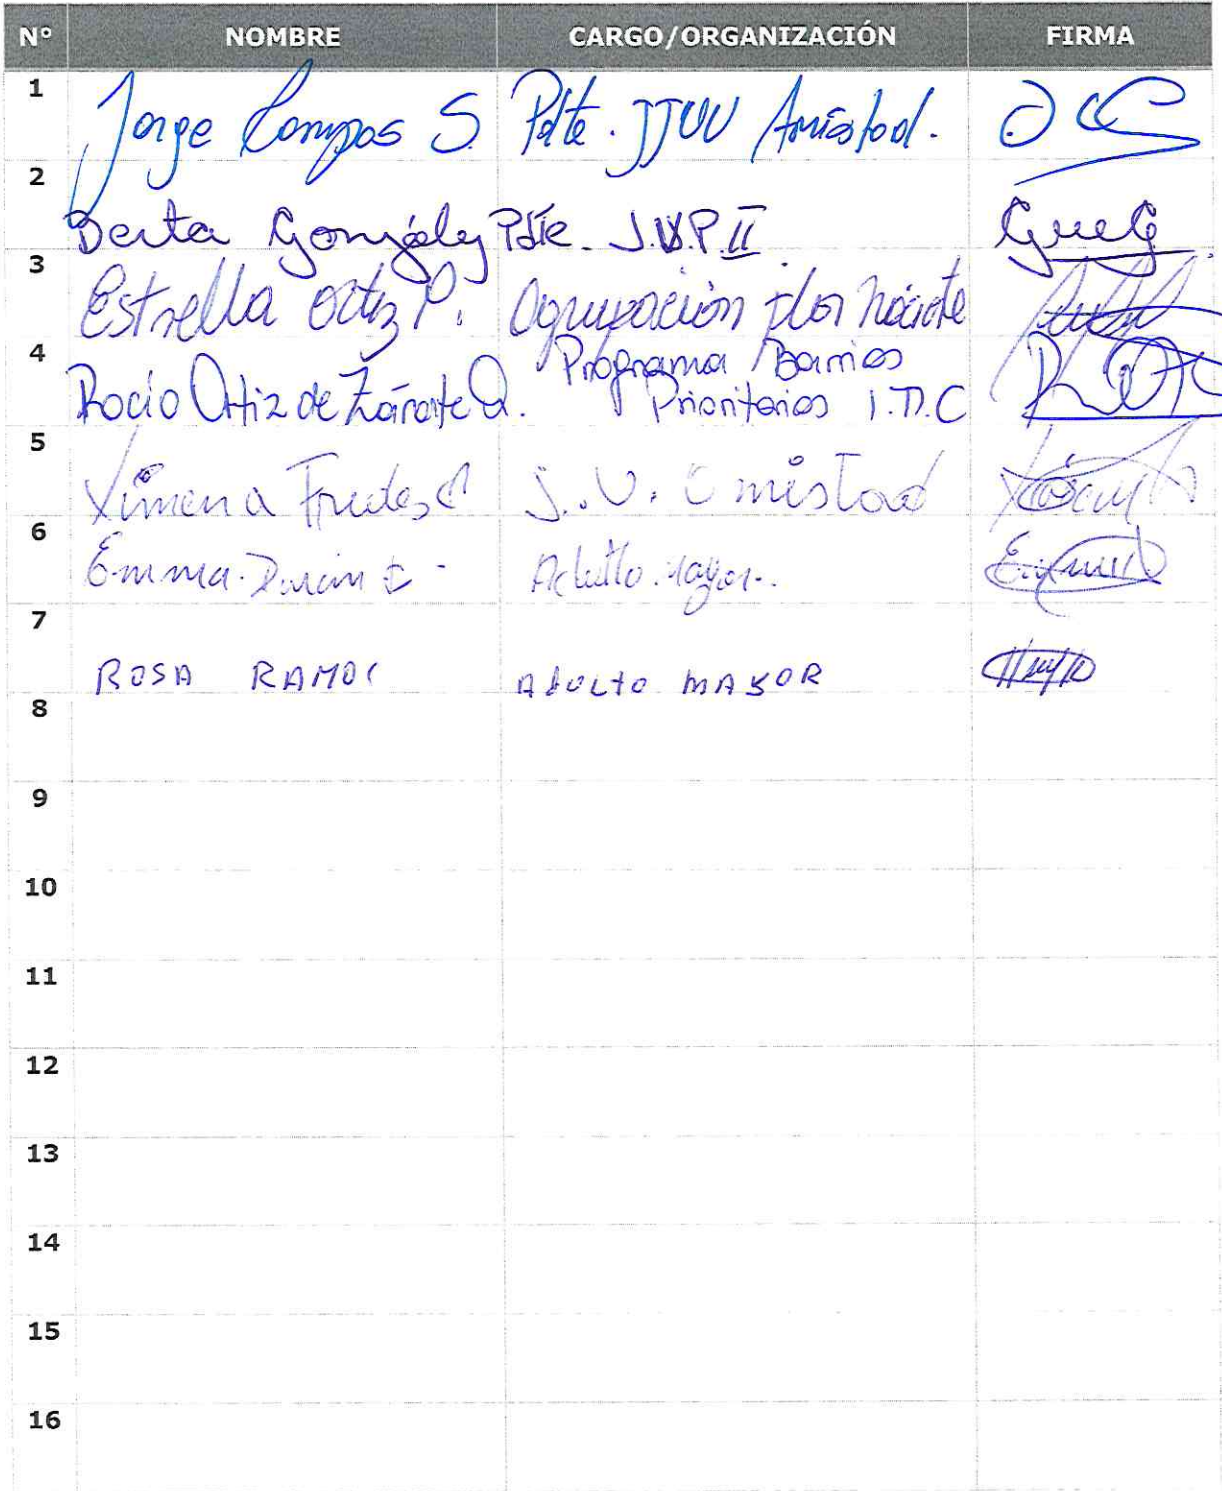 N° NOMBRE CARGO/ORGANIZACIÓN FIRMA
1 Jorge Campos S. Pdte. JJVV Amistad.
2 Berta González Pdte. J.V.P. II
3 Estrella Ortiz P. Agrupación flor
4 Rocío Ortiz de Zárate Q. Programa Barrios
Prioritarios I.D.C
5 Ximena Fredes J.V. Amistad
6 Emma Durán Adulto mayor.
7 ROSA RAMOS ADULTO MAYOR
8
9
10
11
12
13
14
15
16